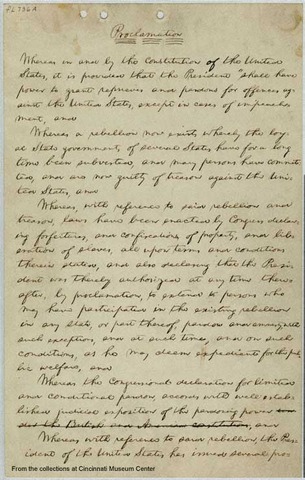 PG 736 A
Proclamation
Whereas in and by the Constitution of the United
States, it is provided that the President "shall have
power to grant reprieves and pardons for offences ag-
ainst the United States, except in cases of impeach-
ment, and
Whereas a rebellion now exists whereby the loy-
al State governments of several States have for a long
time been subverted, and many persons have commit-
ted, and are now guilty of treason against the Uni-
ted States, and
Whereas, with reference to said rebellion and
treason, laws have been enacted by Congress declar-
ing forfeitures, and confiscations of property, and lib-
eration of slaves, all upon terms and conditions
therein stated, and also declaring that the Presi-
dent was thereby authorized at any time there-
after, by proclamation, to extend to persons who
may have participated in the existing rebellion
in any State, or part thereof, pardon and amnesty, with
such exceptions, and at such times, and on such
conditions, as he may deem expedient for the pub-
lic welfare, and
Whereas the congressional declaration for limited
and conditional pardon, accords with well estab-
lished judicial exposition of the pardoning power
and
Whereas with reference to said rebellion, the Pres-
ident of the United States has issued several pro-
From the collections at Cincinnati Museum Center